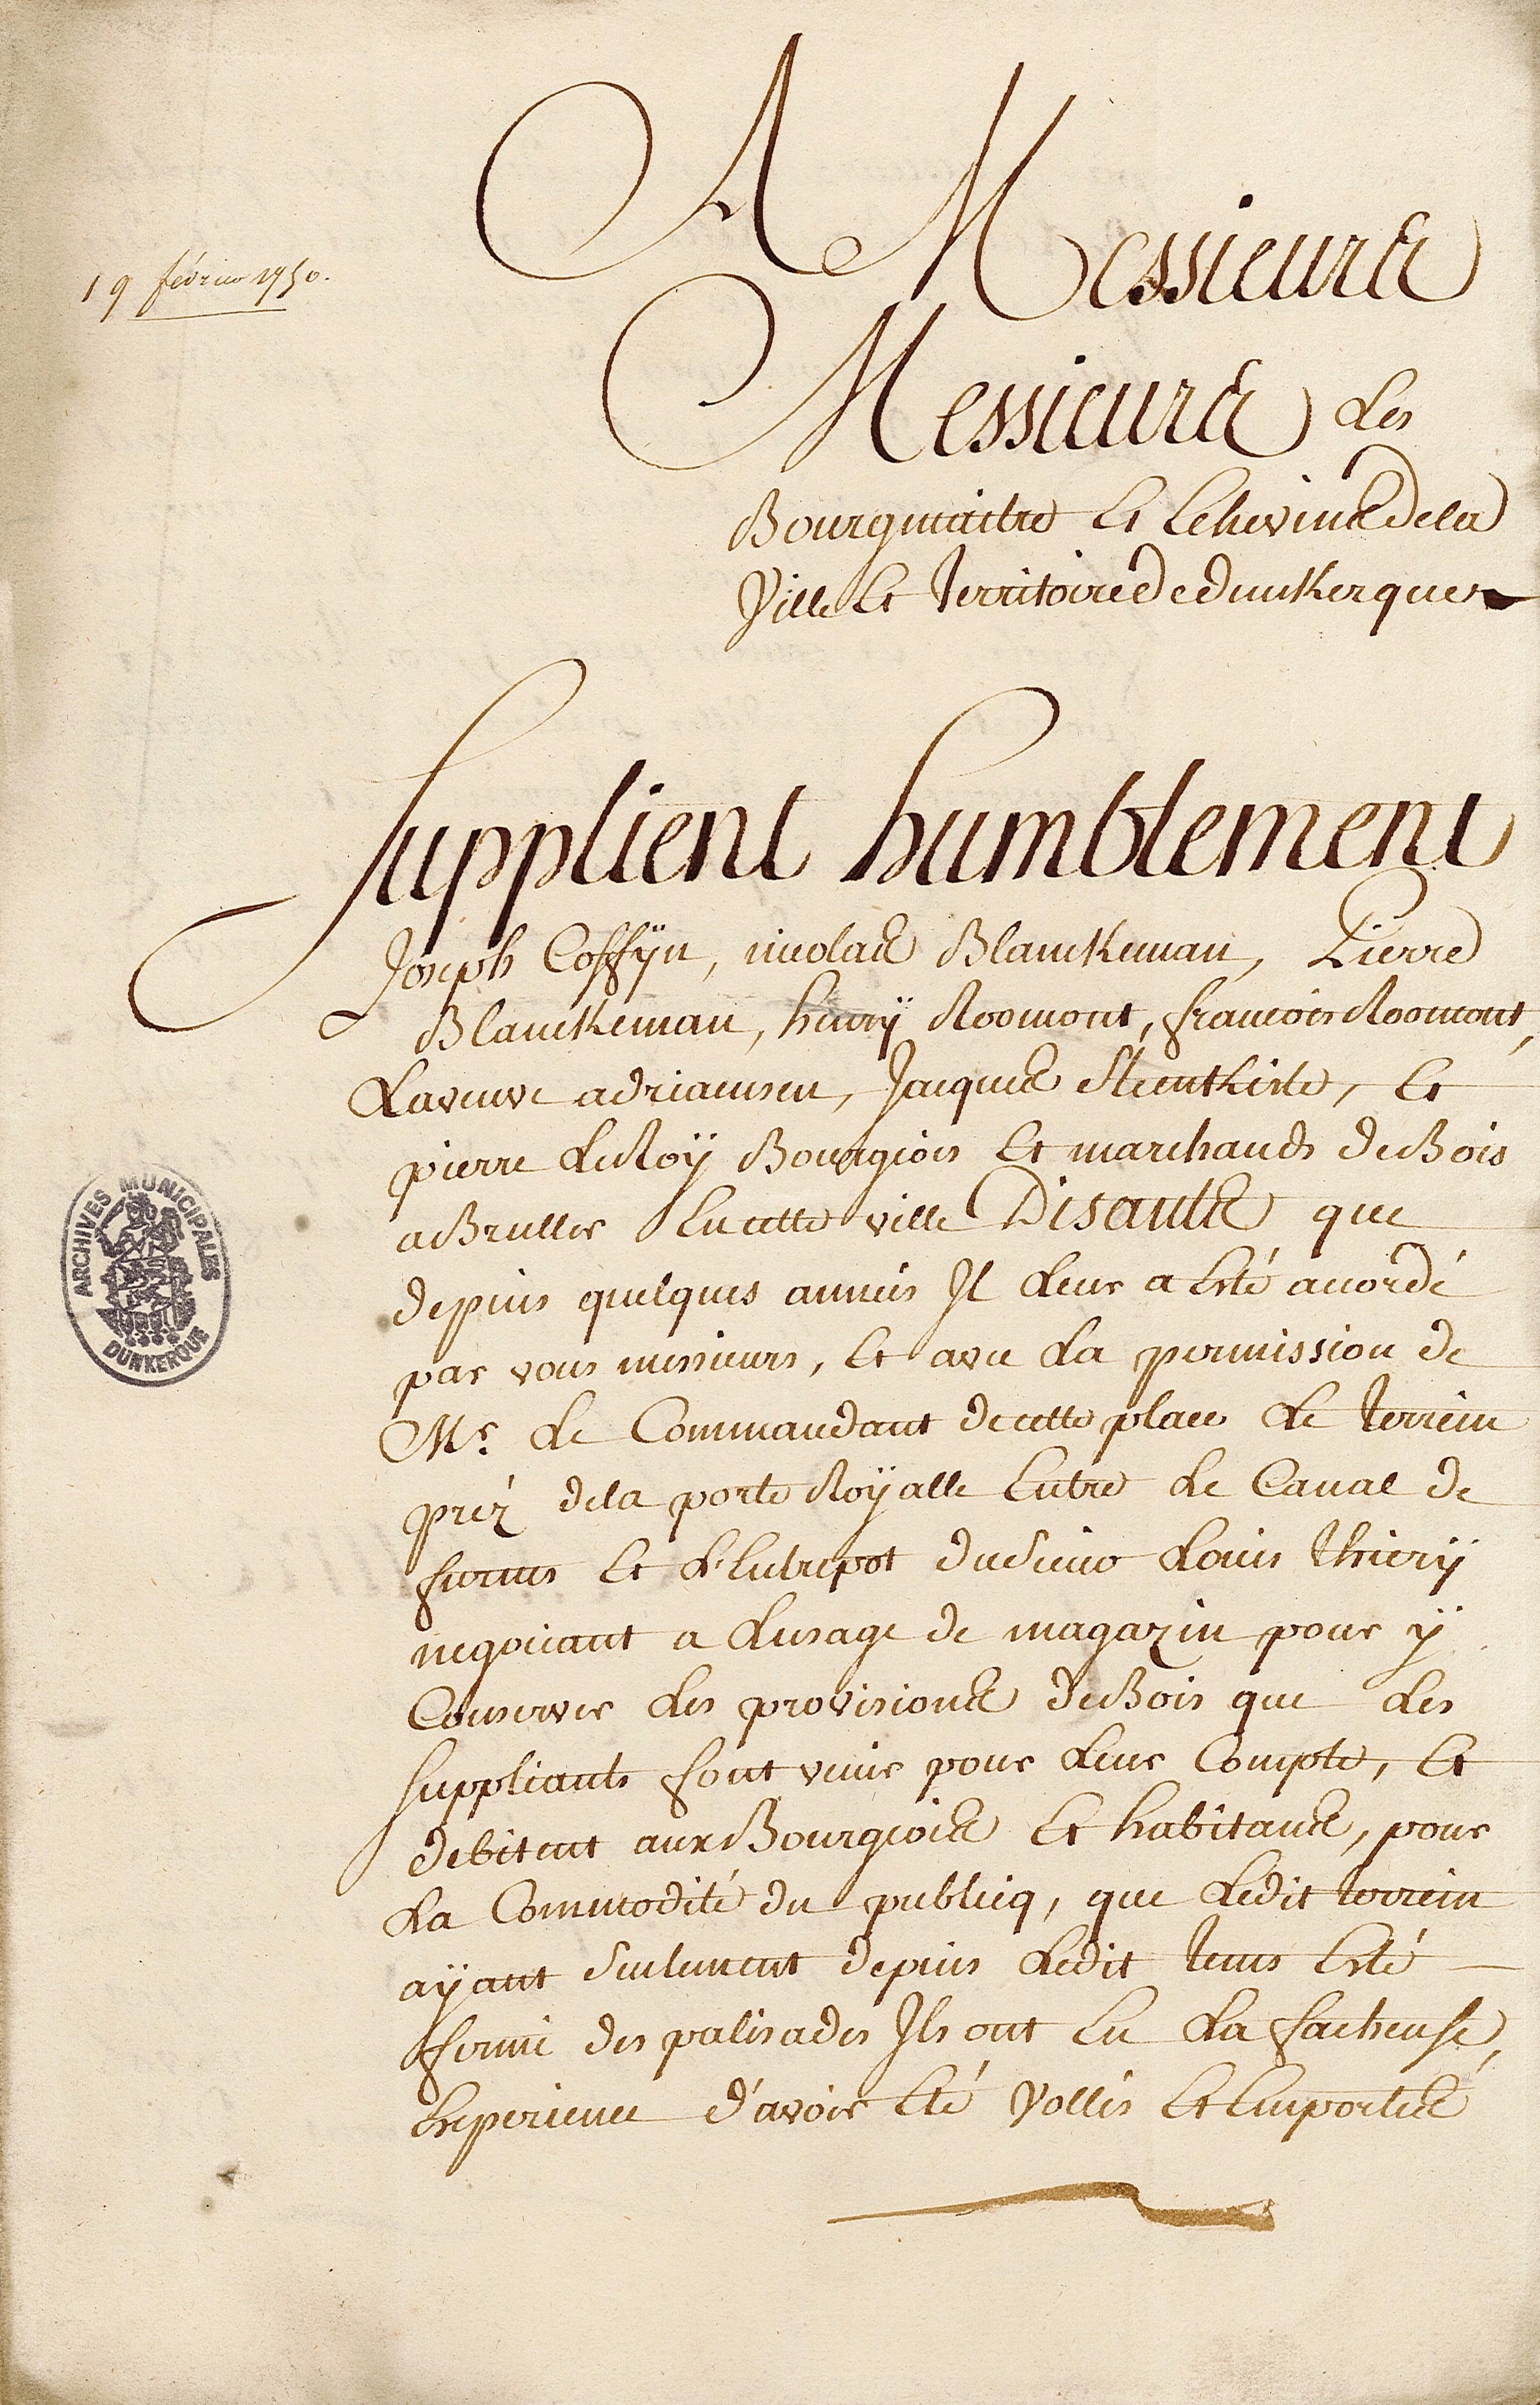 19 février 1750.
A Messieurs
Messieurs Les
Bourgmaitre Et Echevins dela
Ville Et Territoire de dunkerque
Supplient humblement
Joseph Coffÿn, nicolas Blanckeman, Pierre
Blanckeman, henrÿ Roomont, francois Roomont,
La veuve adriansen, Jacques Steenkiste, Et
pierre LeRoÿ Bourgeois Et marchands de Bois
a Bruller En cette ville Disants que
depuis quelques années Il Leur a Esté accordé
par vous messieurs, Et avec La permission de
Mr. Le Commandant de cette place Le terrein
prez dela porte Roÿalle Entre Le Canal de
furnes Et L'Entrepot du Sieur Louis Thierÿ
negociant a Lusage de magazin pour ÿ
Conserver Les provisions de Bois que Les
suppliants font venir pour Leur Compte, Et
debitent aux Bourgeois Et habitans, pour
La Commodité du publicq, que Ledit terrein
aÿant Seulement depuis Ledit tems Esté
fermé des palisades Ils ont Eu La facheuse,
Experience d'avoir Eté Vollés Et Emportés
ARCHIVES MUNICIPALES
DUNKERQUE